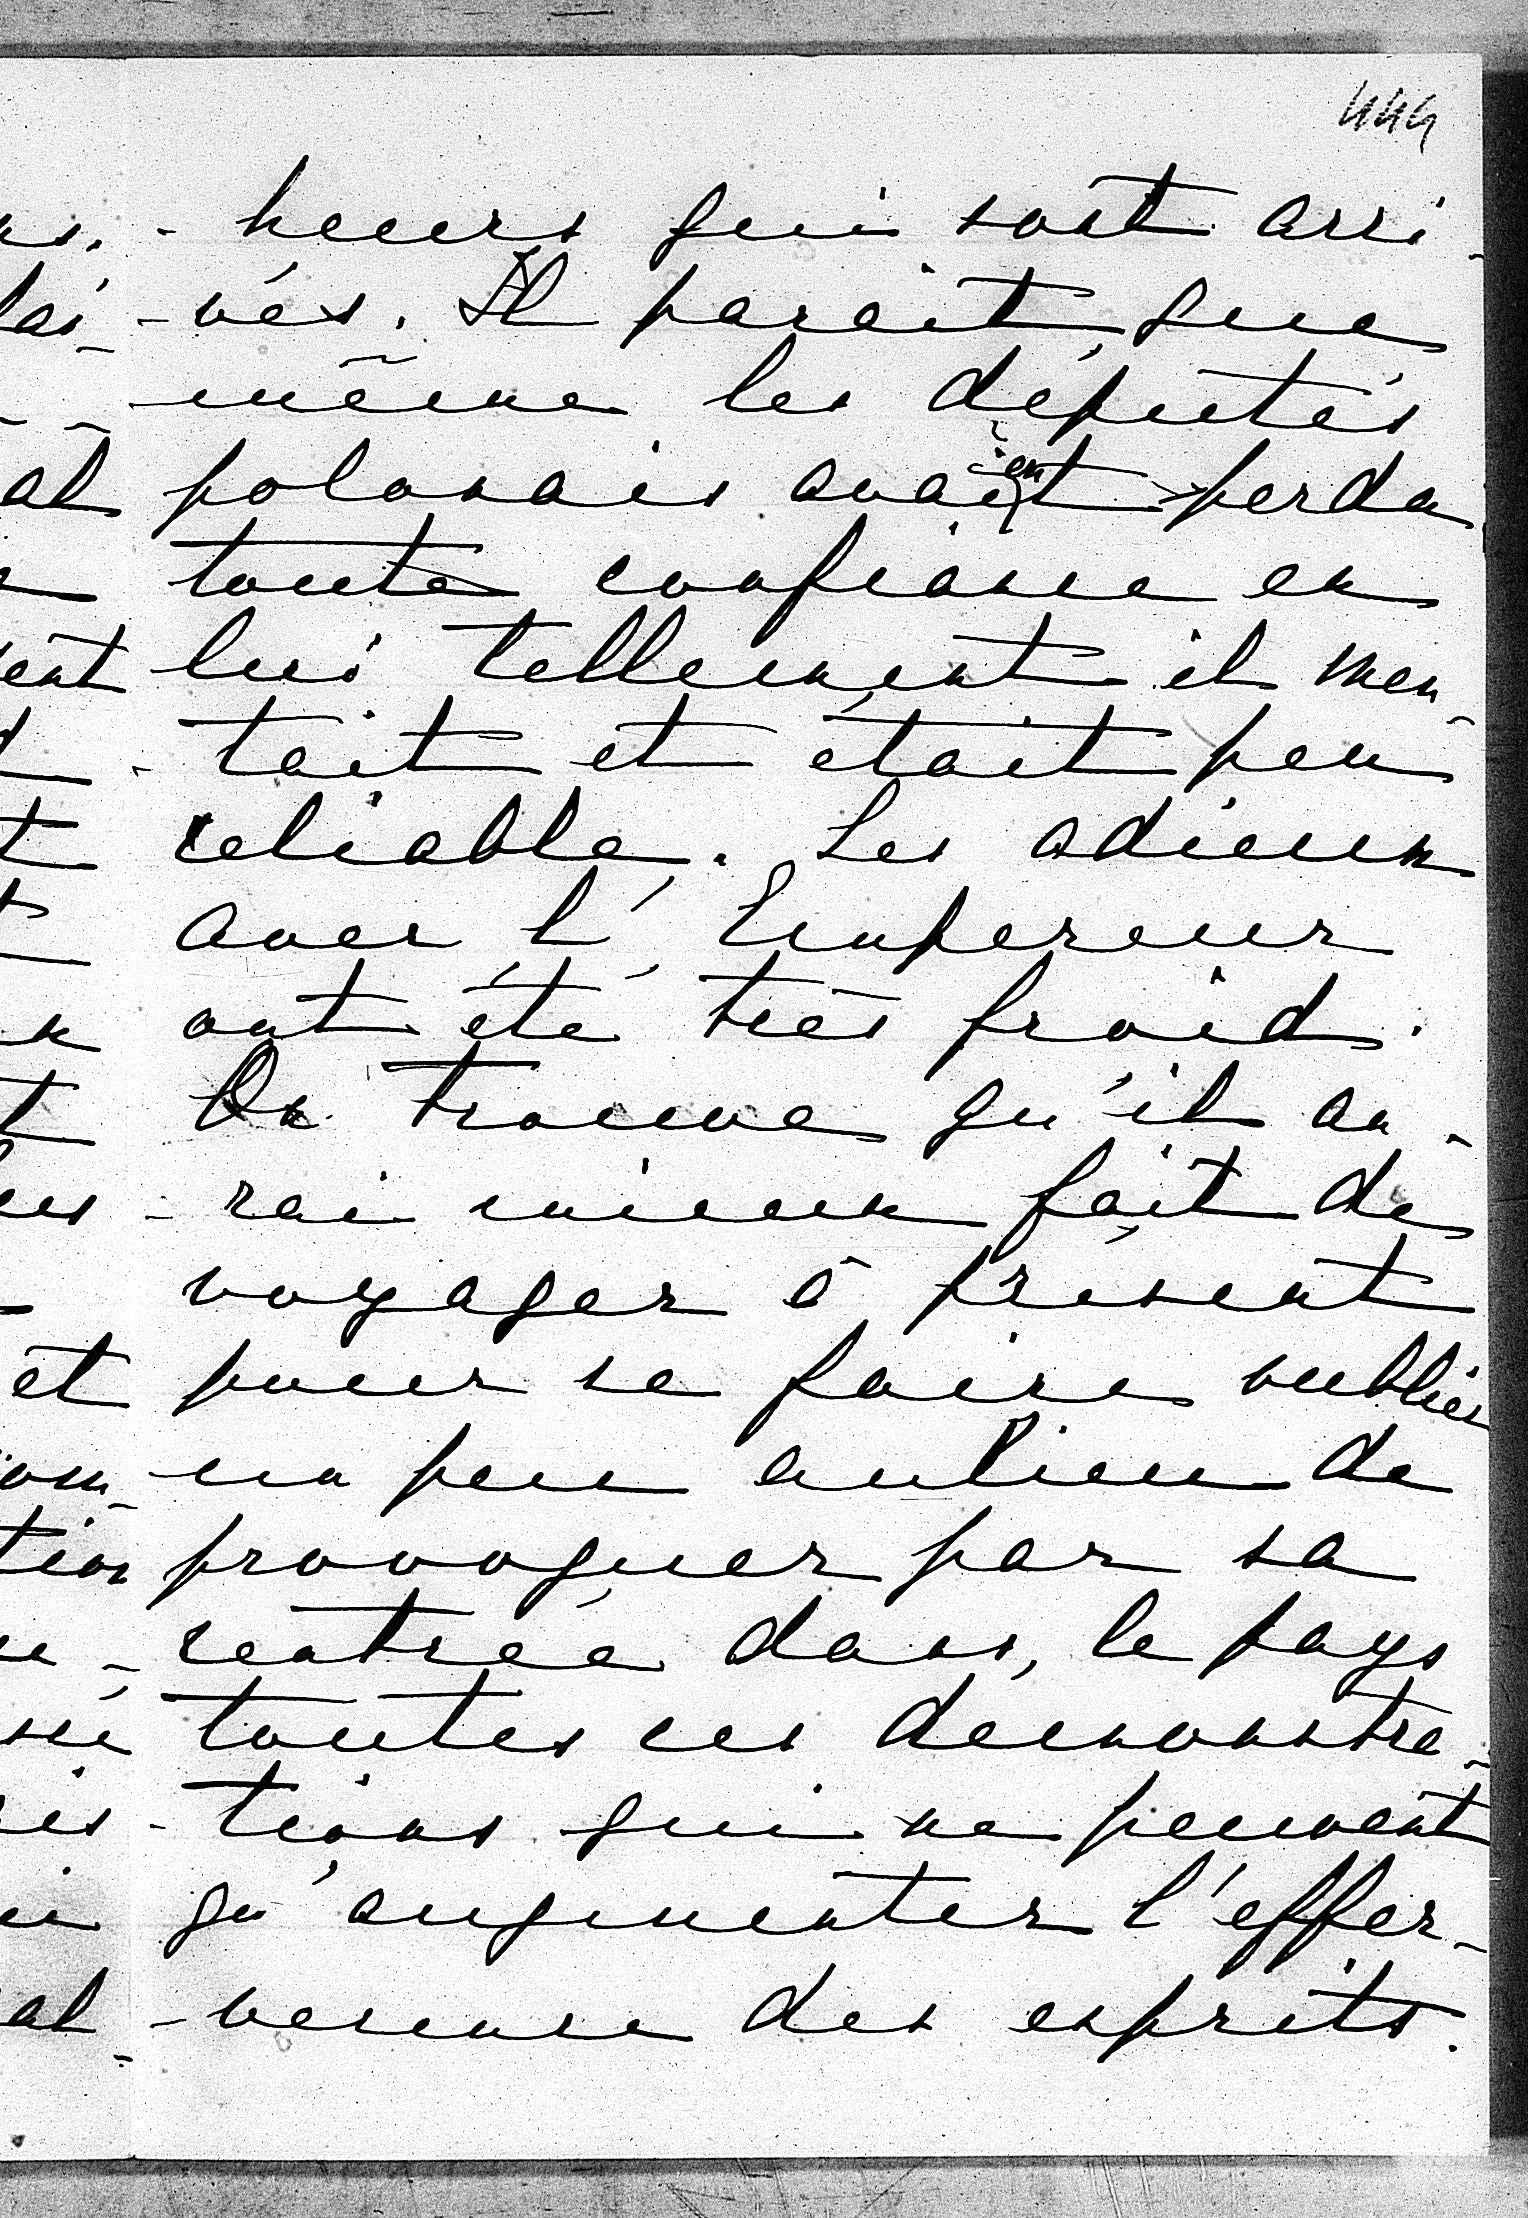 444
- heurs qui sont arri-
-vés. Il parait que
même les députés
polonais avaient perdu
toute confiance en
lui tellement il men-
- tait et était peu
reliable. Les adieux
avec l'Empereur
ont été très froid.
On trouve qu'il au-
- rai mieux fait de
voyager à présent
pour se faire oublier
un peu aulieu de
provoquer par sa
rentrée dans, le pays
toutes ces demonstra-
- tions qui ne peuvent
qu'augmenter l'effer-
- vecence des esprits.